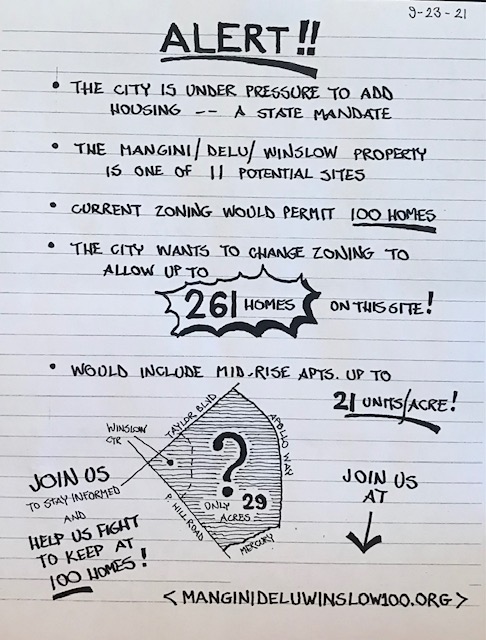 9-23-21
ALERT!!
• THE CITY IS UNDER PRESSURE TO ADD
HOUSING -- A STATE MANDATE
• THE MANGINI/DELU/WINSLOW PROPERTY
IS ONE OF 11 POTENTIAL SITES
• CURRENT ZONING WOULD PERMIT 100 HOMES
• THE CITY WANTS TO CHANGE ZONING TO
ALLOW UP TO
261 HOMES ON THIS SITE!
• WOULD INCLUDE MID-RISE APTS. UP TO
21 UNITS/ACRE!
TAYLOR BLVD
APOLLO WAY
WINSLOW
CTR
?
ONLY 29
ACRES
P. HILL ROAD
MERCURY
JOIN US
TO STAY INFORMED
AND
HELP US FIGHT
TO KEEP AT
100 HOMES!
JOIN US
AT
<MANGINIDELUWINSLOW100.ORG>